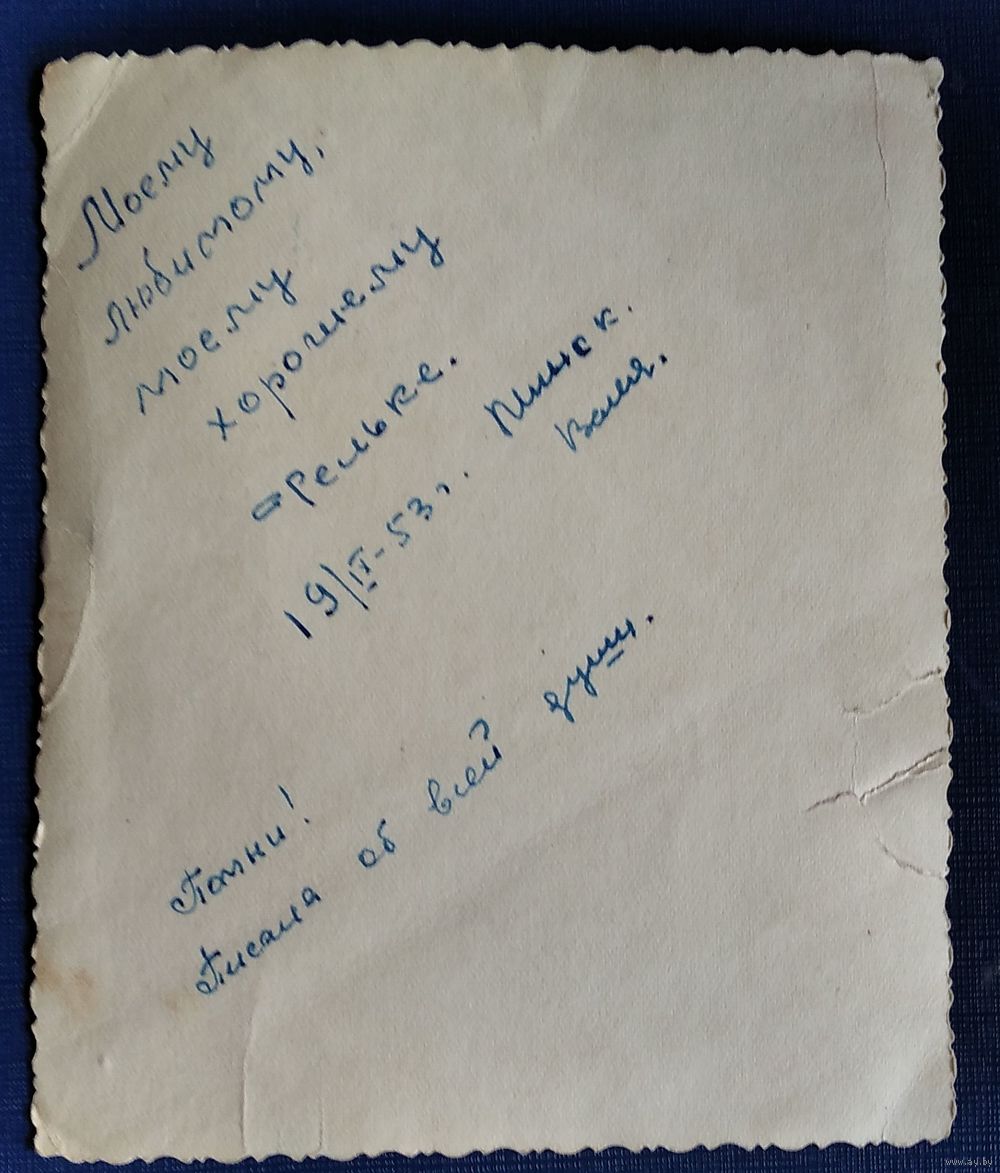 Моему
любимому,
моему
хорошему
орельке.
19/IV-53 г. Пинск.
Валя.
Помни!
Писала об всей души.
www.ay.by